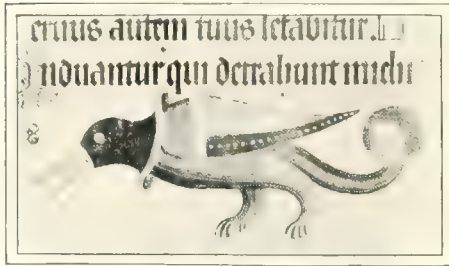 eruus autem tuus letabitur.
nduantur qui detrahunt michi